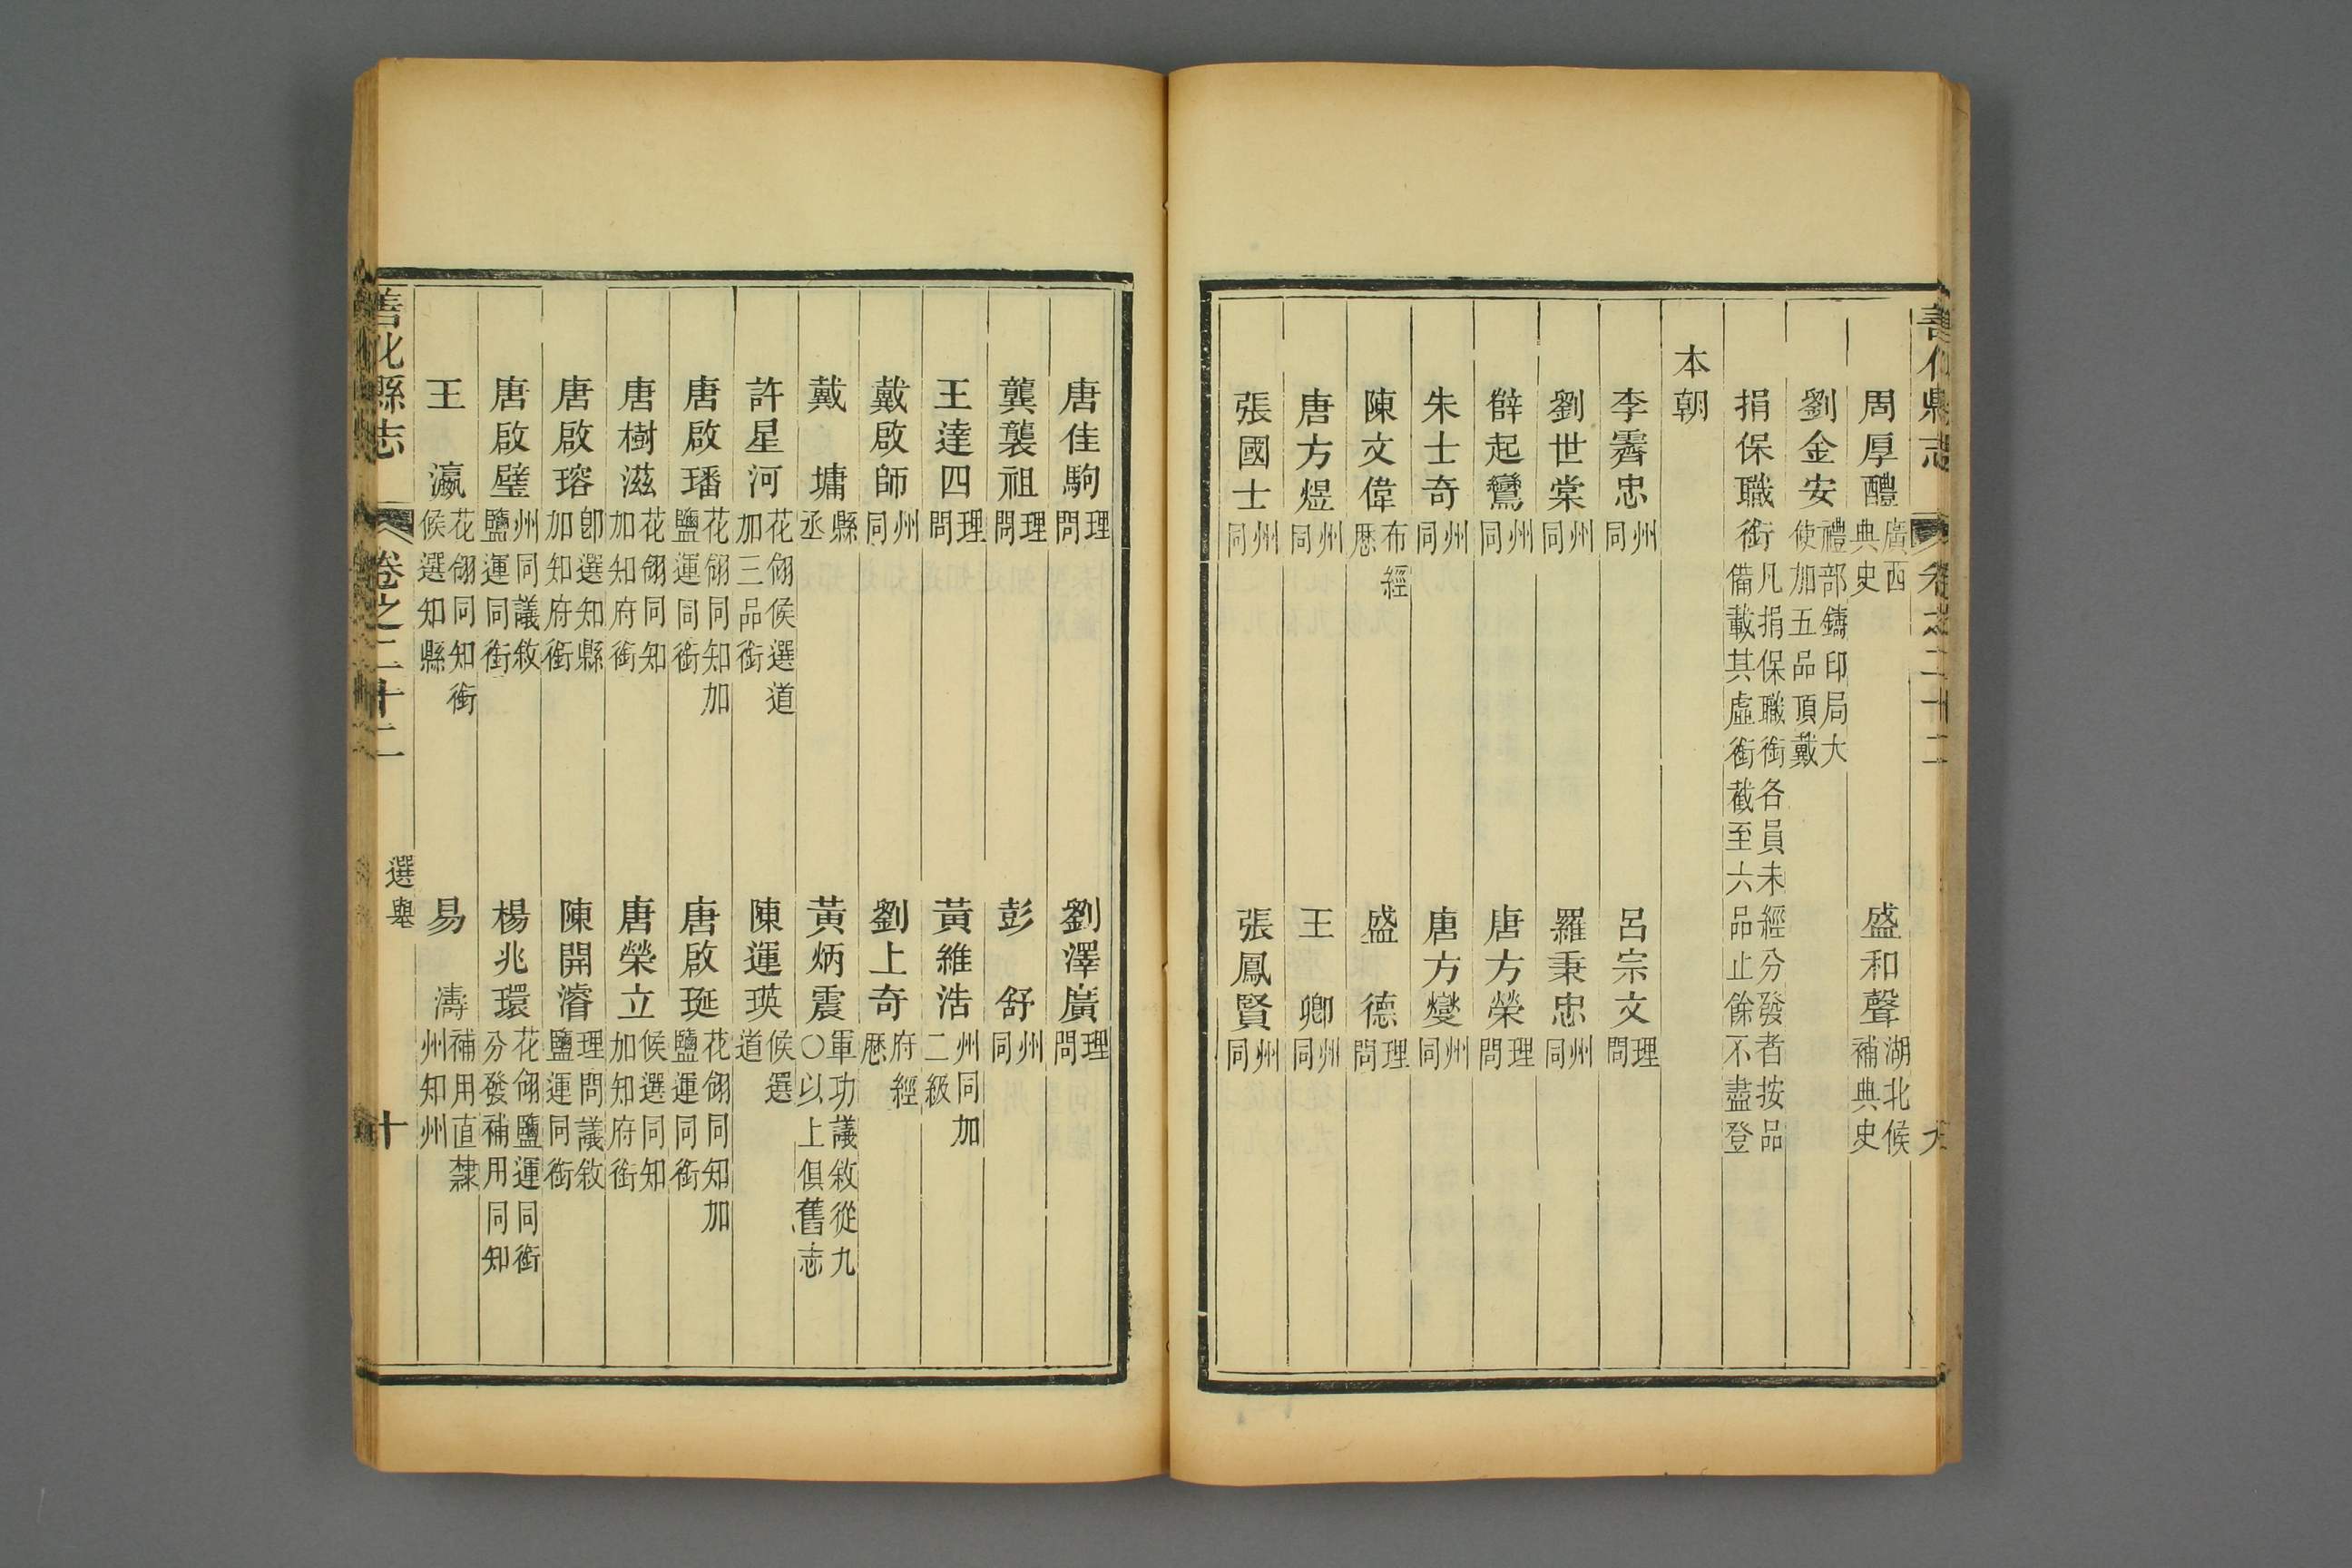 善化縣志 卷之二十二
周厚醴 廣西典史 盛和聲 湖北候補典史
劉金安 禮部鑄印局大使加五品頂戴
捐保職銜 凡捐保職銜各員未經分發者按品備載其虛銜截至六品止餘不盡登
本朝
李霽忠 州同 呂宗文 理問
劉世棠 州同 羅秉忠 州同
辥起鸞 州同 唐方榮 理問
朱士奇 州同 唐方燮 州同
陳文偉 布經歷 盛德 理問
唐方煜 州同 王卿 州同
張國士 州同 張鳳賢 州同
唐佳駒 理問 劉澤廣 理問
龔襲祖 理問 彭舒 州同
王達四 理問 黃維浩 州同加二級
戴啟師 州同 劉上奇 府經歷
戴墉 縣丞 黃炳震 軍功議敘從九○以上俱舊志
許星河 花翎候選道加三品銜 陳運瑛 候選道
唐啟璠 花翎同知加鹽運同銜 唐啟珽 花翎同知加鹽運同銜
唐樹滋 花翎同知加知府銜 唐榮立 候選同知加知府銜
唐啟瑢 卽選知縣加知府銜 陳開濬 理問議敘鹽運同銜
唐啟璧 州同議敘鹽運同銜 楊兆環 花翎鹽運同銜分發補用同知
王瀛 花翎同知銜候選知縣 易濤 補用直隸州知州
善化縣志 卷之二十二 選舉 十